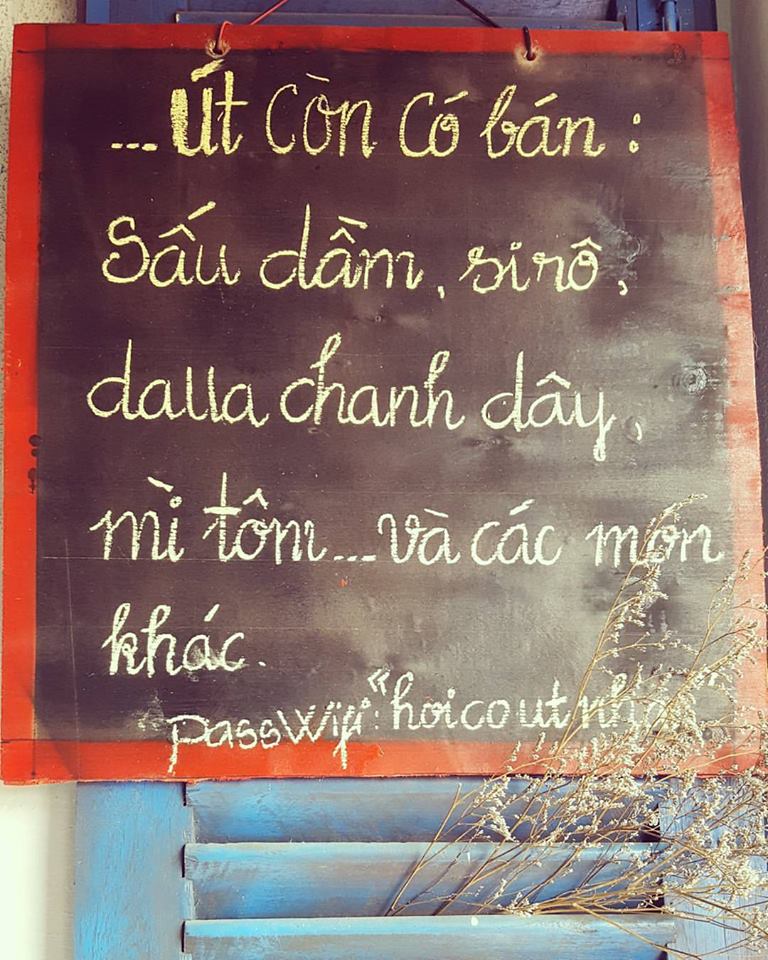 ...Út còn có bán :
Sấu dầm, sirô,
dalla chanh dây,
mì tôm...và các món
khác.
passWifi: "hoicoutnh